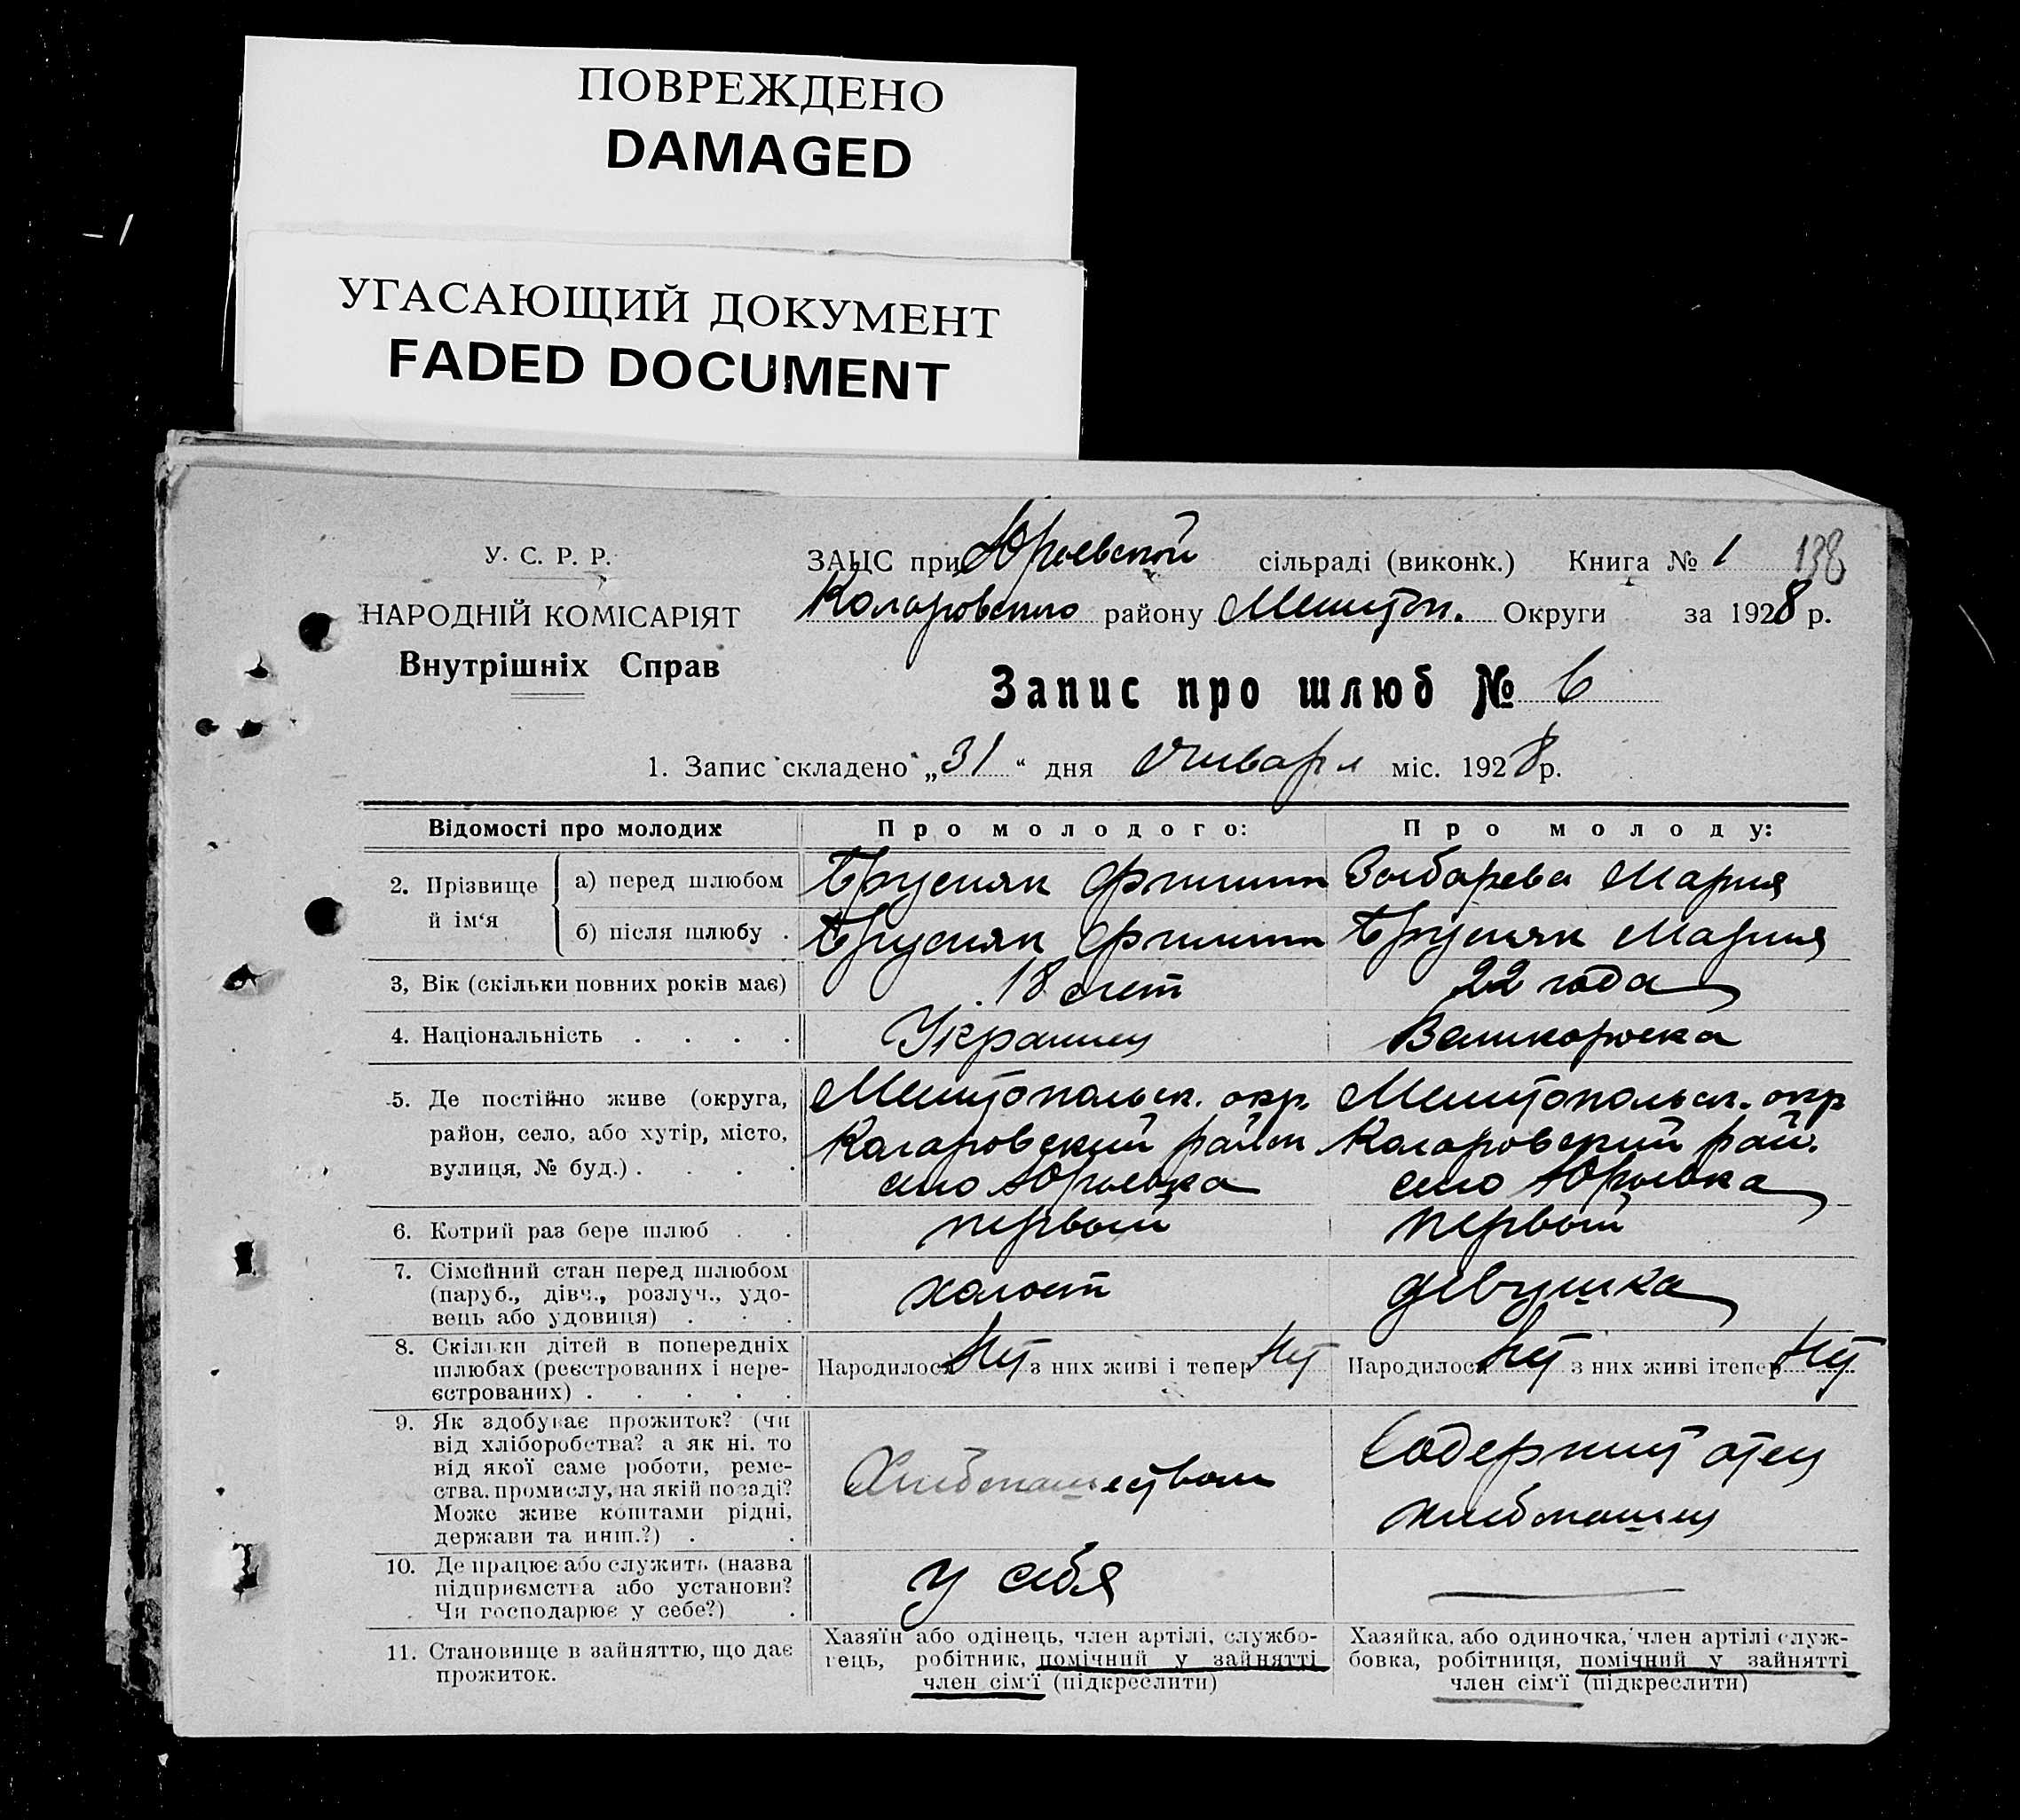 ПОВРЕЖДЕНО
DAMAGED
УГАСАЮЩИЙ ДОКУМЕНТ
FADED DOCUMENT
У. С. Р. Р.
НАРОДНІЙ КОМІСАРІЯТ
Внутрішніх Справ
ЗАЦС при Юрьевской сільраді (виконк.) Книга № 1 138
Коларовского району Мелитоп. Округи за 1928 р.
Запис про шлюб № 6
1. Запис складено „31“ дня Января міс. 1928 р.
Відомості про молодих Про молодого: Про молоду:
2. Прізвище й ім‘я
а) перед шлюбом Трусияк Филипп Мария
б) після шлюбу . Трусияк Филипп Трусияк Мария
3, Вік (скільки повних років має) 18 лет 22 года
4. Національність . . . . Украинец Великоросска
5. Де постійно живе (округа,
район, село, або хутір, місто,
вулиця, № буд.) . . . .
Мелитопольск. окр.
Коларовский район
село Юрьевка
Мелитопольск. окр
Коларовский рай.
село Юрьевка
6. Котрий раз бере шлюб . . первый первый
7. Сімейний стан перед шлюбом
(паруб., дівч., розлуч., удо-
вець або удовиця) . . .
холост девушка
8. Скільки дітей в попередніх
шлюбах (реєстрованих і нере-
єстрованих) . . . . .
Народилося Нет з них живі і тепер Нет
Народилося Нет з них живі ітепер Нет
9. Як здобуває прожиток? (чи
від хліборобства? а як ні, то
від якої саме роботи, реме-
ства, промислу, на якій посаді?
Може живе коштами рідні,
держави та инш.?) . .
Хлебопашеством
Содержит отец
хлебопашец
10. Де працює або служить (назва
підприємства або установи?
Чи господарює у себе?) .
у себя
11. Становище в зайняттю, що дає
прожиток.
Хазяїн або одінець, член артілі, службо-
вець, робітник, помічний у зайнятті
член сім‘ї (підкреслити)
Хазяйка, або одиночка, член артілі служ-
бовка, робітниця, помічний у зайнятті
член сім‘ї (підкреслити)